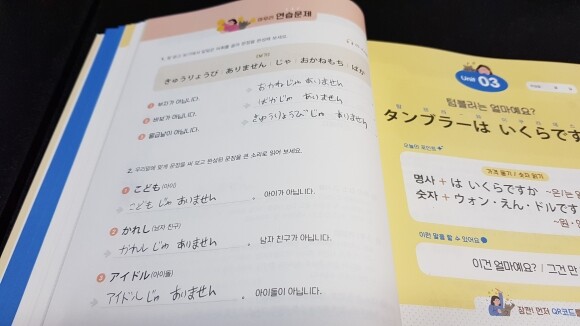 마무리 연습문제
きゅうりょうび ありません じゃ おかねもち ばか
① 부자가 아닙니다.
おかねじゃ ありません
② 바보가 아닙니다.
ばかじゃ ありません
③ 월급날이 아닙니다.
きゅうりょうびじゃ ありません
2. 우리말에 맞게 문장을 써 보고 완성된 문장을 큰 소리로 읽어 보세요.
① こども(아이)
こども じゃ ありません , 아이가 아닙니다.
② かれし(남자 친구)
かれし じゃ ありません , 남자 친구가 아닙니다.
③ アイドル(아이돌)
アイドル じゃ ありません , 아이돌이 아닙니다.
Unit 03
텀블러는 얼마예요?
タンブラーは いくらです
오늘의 포인트
가격 묻기 / 숫자 읽기
명사 + は いくらですか ~은/는 얼
숫자 + ウォン・えん・ドルです
~원・엔
이런 말을 할 수 있어요
이건 얼마예요? / 그건 만
잠깐! 먼저 QR코드를